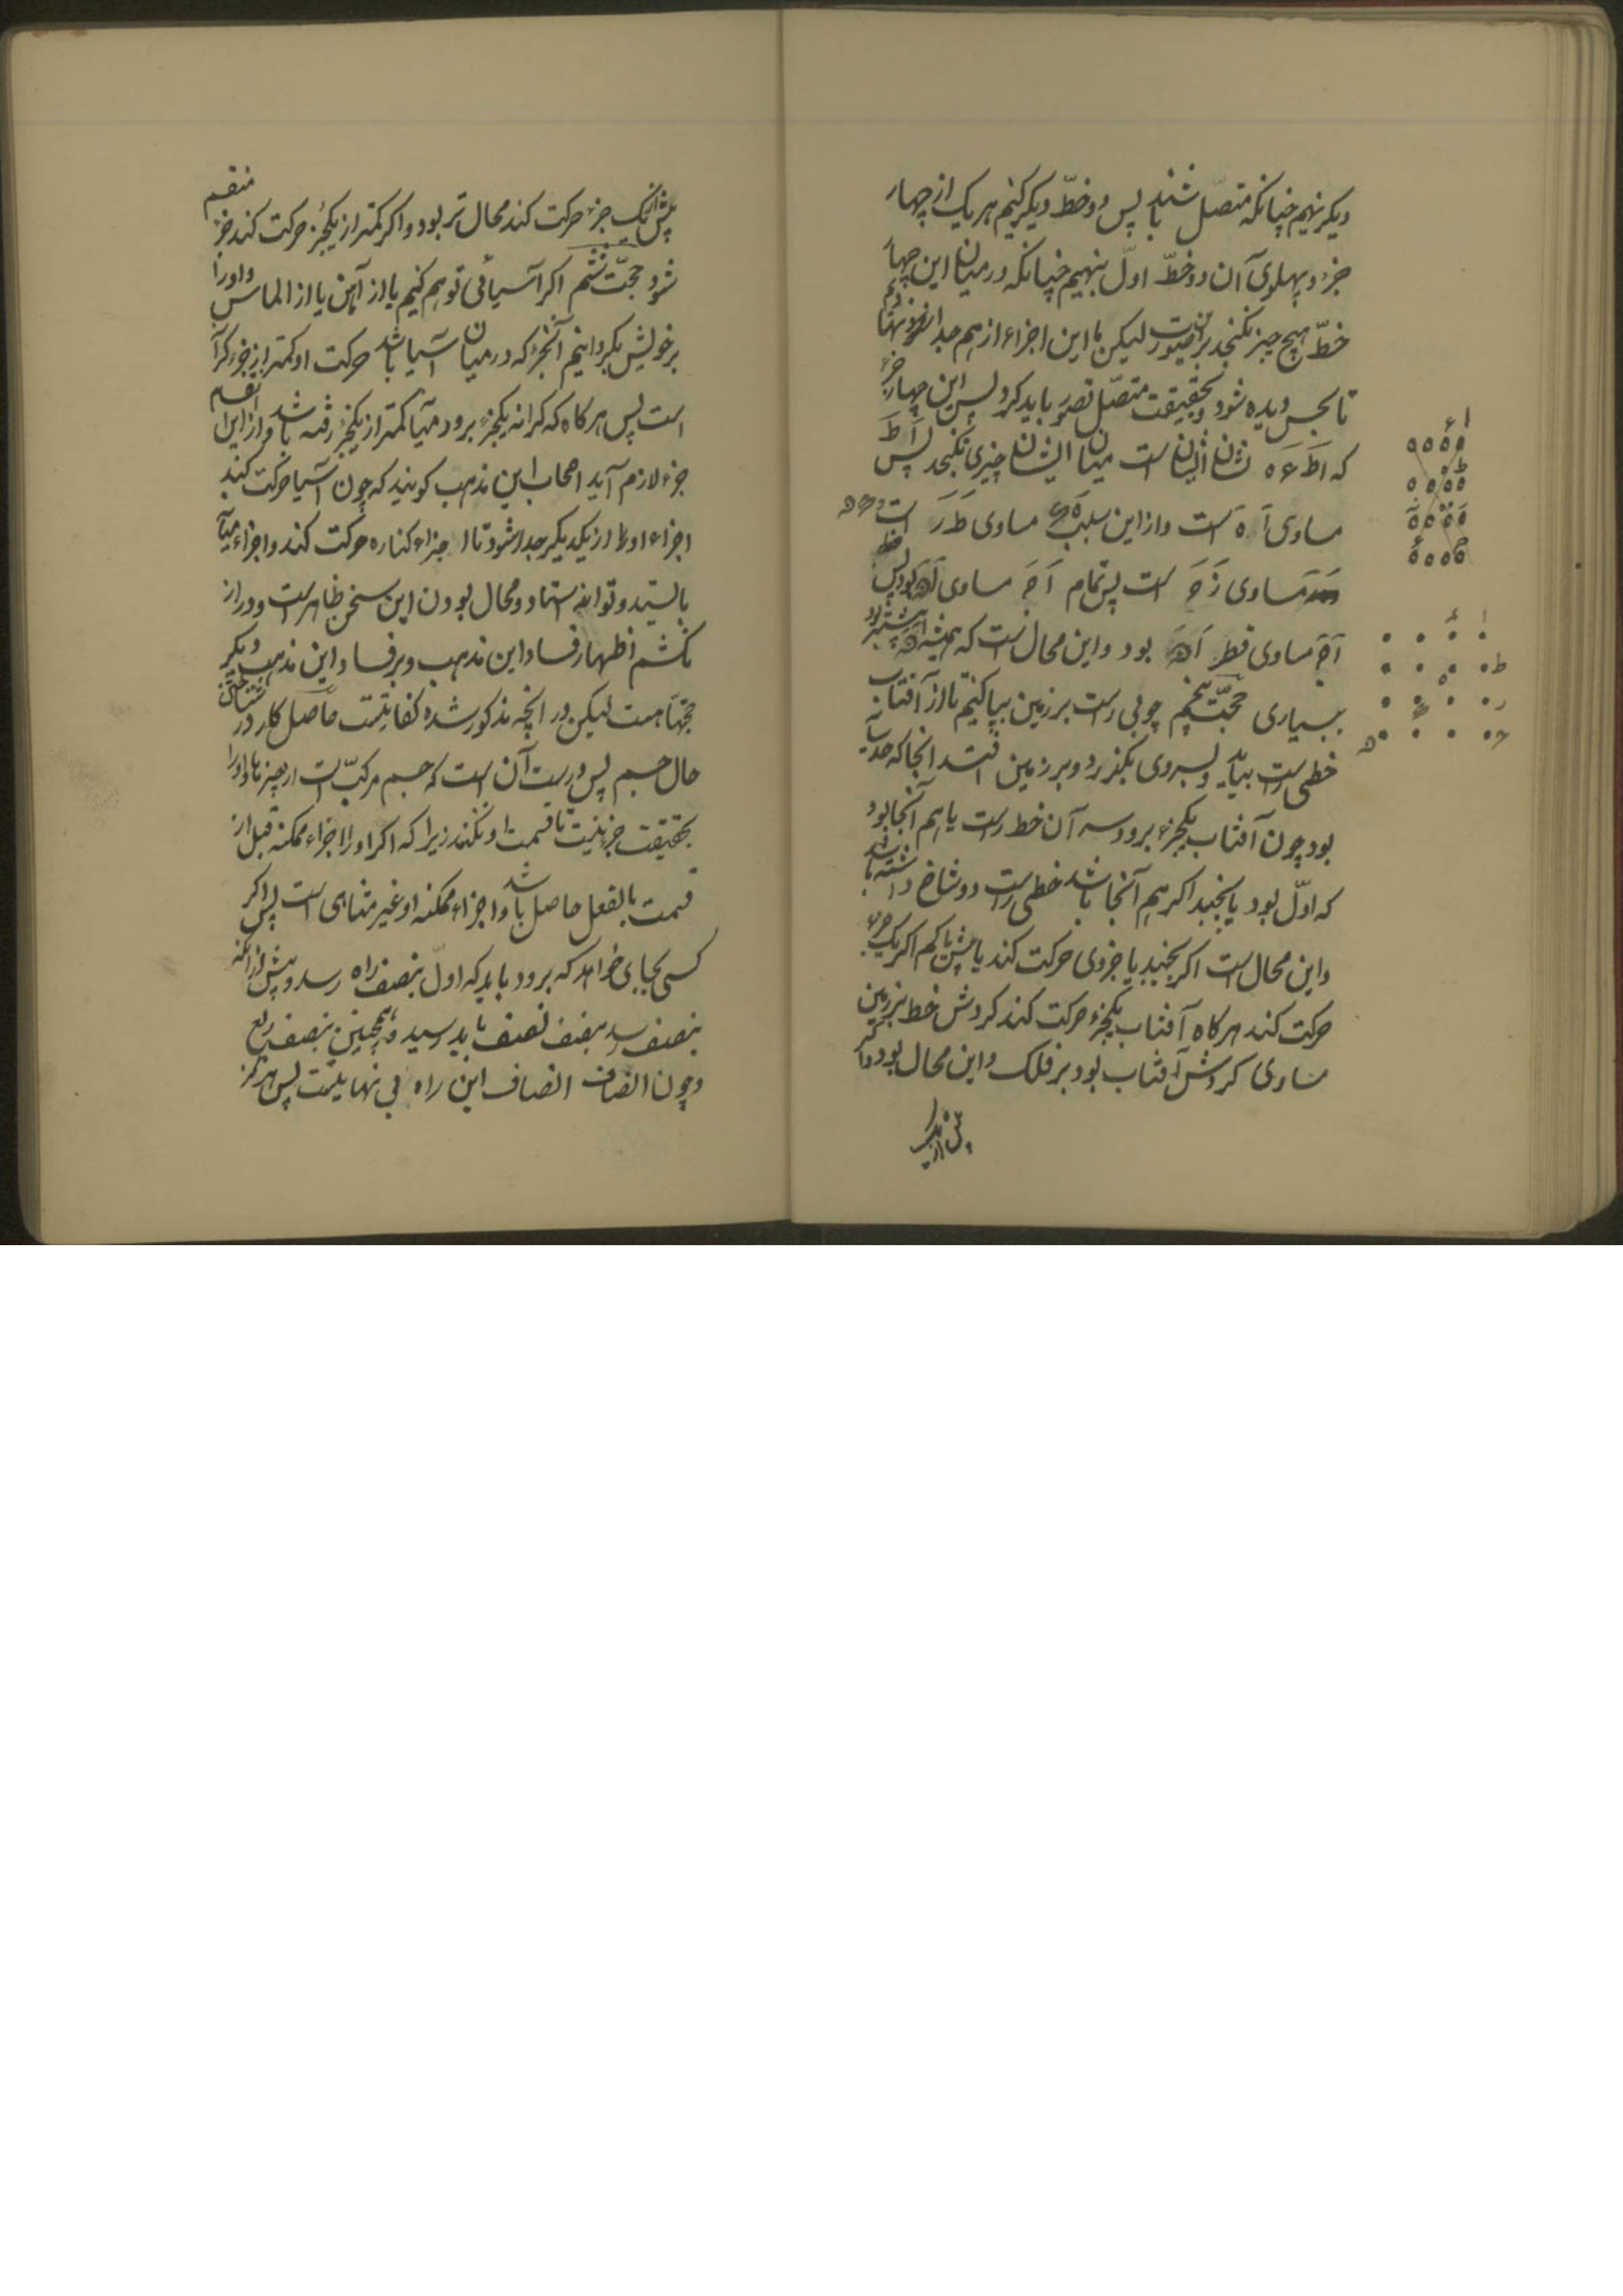 دیکر نهیم چنانکه متصّل باشند پس دو خطّ دیکر کنیم هر یک از چهار
جزء و پهلوی آن دو خطّ اوّل بنهیم چنانکه در میان این چهار
خطّ هیچ چیز نکنجد برین صورت لیکن ما این اجزاء از هم جدا
تا بحس دیده شود و بحقیقت متصّل تصور باید کرد پس این چهار جزء
که ا ط ء ه نشان ایشان است میان ایشان چیزی نکنجد پس ا ط
مساوی ا ه است و از این سبب مساوی ط ر است
مساوی ز ح است پس تمام ا ح مساوی بود پس
ا ح مساوی قطر بود و این محال است که همیشه
ببسیاری حجّت پنجم چوبی راست بر زمین بپا کنیم تا از آفتاب
خطی راست بیاید و بسر وی بکذرد و بر زمین افتد انجا که حد
بود چون آفتاب یکجزء برود سر آن خط راست یا هم آنجا بود
که اوّل بود یا بجنبد اکر هم آنجا باشد خطی راست دو شاخ داشته باشد
و این محال است اکر بجنبد یا جزوی حرکت کند یا بیش یا کم اکر یک جزء
حرکت کند هر کاه آفتاب یکجزء حرکت کند کردش خط بر زمین
مساوی کردش آفتاب بود بر فلک و این محال بود و اکر
بیش از یک
ا ء
ط ه
ا ء
ط
ه
ر
ح
ه
بیش از یک جزء حرکت کند محال تر بود و اکر کمتر از یکجزء حرکت کند جزء منقسم
شود حجّت ششم اکر آسیائی توهم کنیم یا از آهن یا از الماس و او را
بر خویش بکردانیم آنجزء که در میان آسیا باشد حرکت او کمتر از جزء
است پس هر کاه که کرانه یکجزء برود میانه کمتر از یکجزء رفته باشد و از این انقسام
جزء لازم آید اصحاب این مذهب کویند که چون آسیا حرکت کند
اجزاء او از یکدیکر جدا شود تا اجزاء کناره حرکت کند و اجزاء میانه
بایستد و تواند استاد و محال بودن این سخن ظاهر است و دراز
نکشم اظهار فساد این مذهب و بر فساد این مذهب دیکر
حجتها هست لیکن در آنچه مذکور شده کفایتست حاصل کار در شناختن
حال جسم پس درست آن است که جسم مرکبّ است از چیزها و او را
بحقیقت جزء نیست تا قسمت او نکنند زیرا که اکر او را اجزاء ممکنه قبل از
قسمت بالفعل حاصل باشد و اجزاء ممکنه او غیر متناهی است پس اکر
کسی بجایی خواهد که برود باید که اوّل بنصف راه رسد و پیش از آنکه
بنصف رسد بنصف نصف باید رسید و همچنین بنصف ربع
و چون انصاف انصاف این راه بی نهایتست پس هرکز